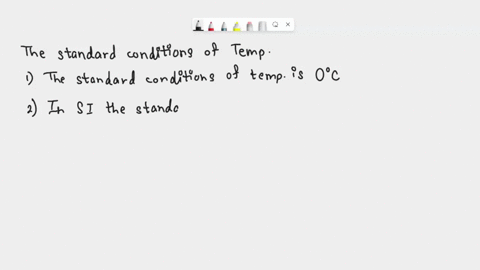 The standard conditions of Temp.
1) The standard conditions of temp. is 0°C
2) In SI the standa